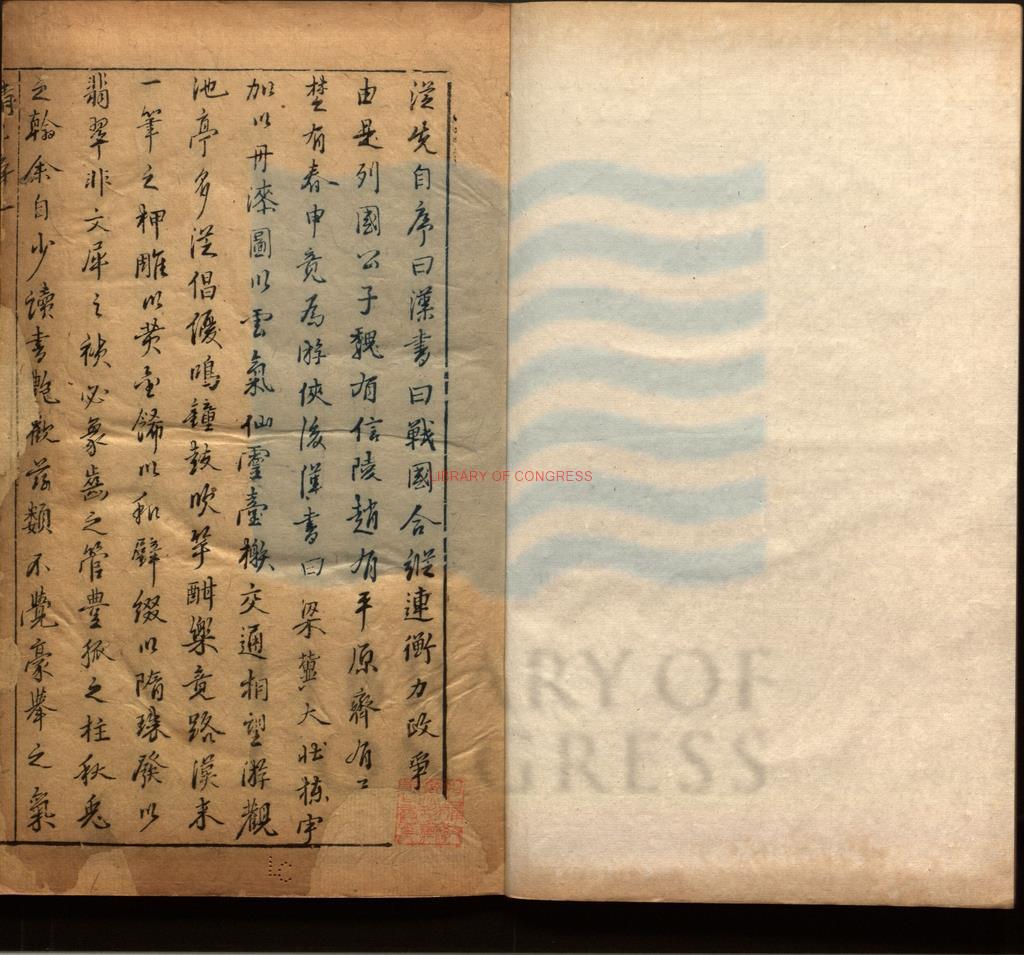 從先自序曰漢書曰戰國合縱連衡力政爭
由是列國公子魏有信陵趙有平原齊有
楚有春申竟為游俠後漢書曰梁冀大壯棟宇
加以丹漆圖以雲氣仙靈臺榭交通相望游觀
池亭多從倡優鳴鐘鼓吹竽酣樂竟路漢末
一筆之柙雕以黃金飾以和璧綴以隋珠發以
翡翠非文犀之楨必象齒之管豐狐之柱秋兔
之翰余自少讀書輒歡茲類不覺豪舉之氣
LIBRARY OF CONGRESS
LC